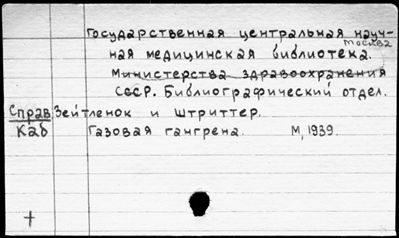 Государственная центральная науч-
ная медицинская библиотека. Москва
Министерства здравоохранения
СССР. Библиографический отдел.
Справ Зейтленок и Штриттер.
Каб Газовая гангрена. М, 1939.